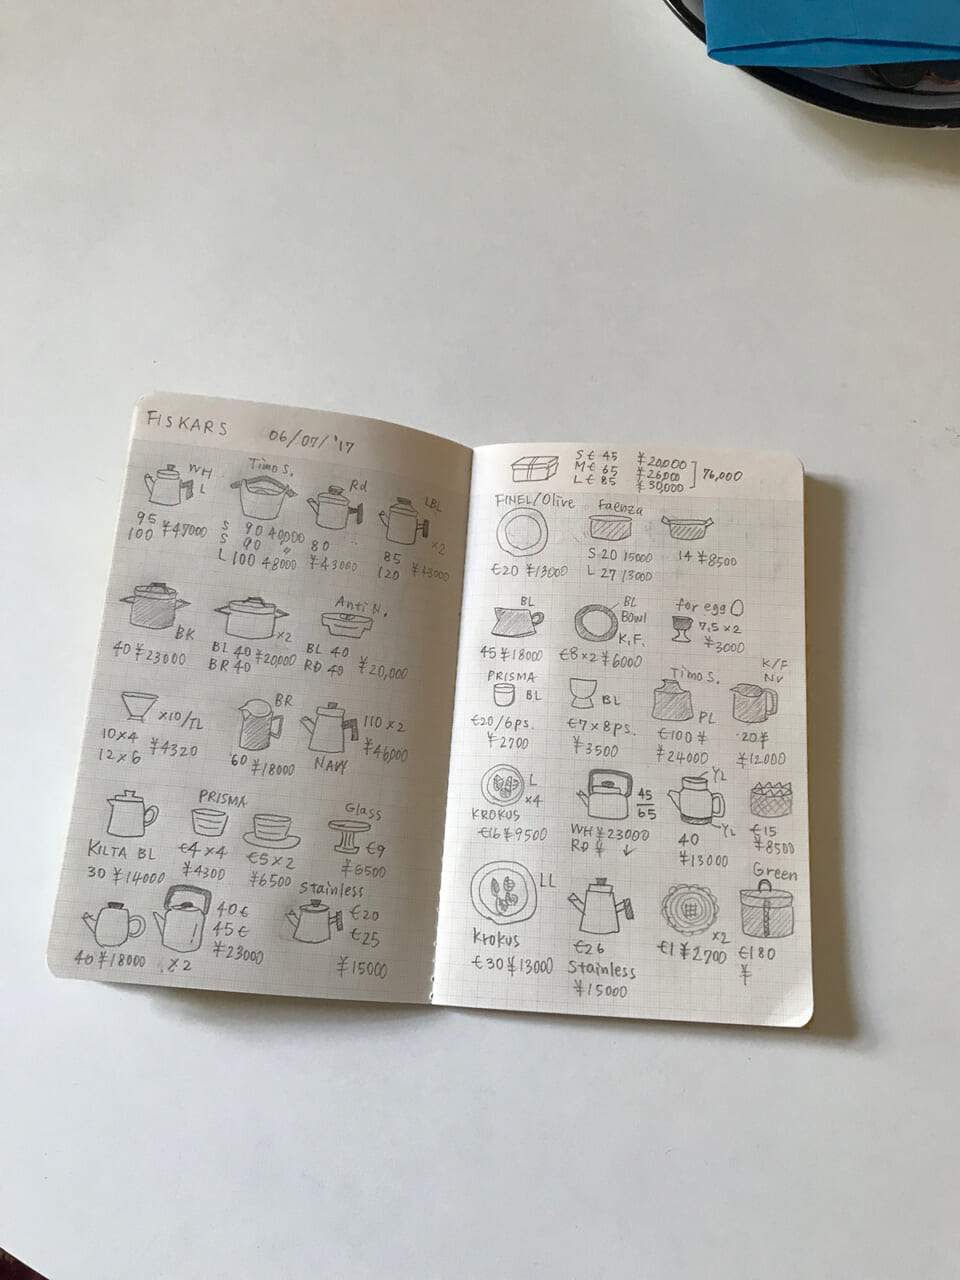 FISKARS 06/07/'17
WH
L
95
100 ¥47000
Timo S.
S 90 40,000
S 90 〃
L 100 48000
Rd
80
¥43000
LBL
×2
85
120 ¥43000
BK
40 ¥23000
×2
BL 40 ¥20,000
BR 40
Anti N.
BL 40
RD 40 ¥20,000
×10/TL
10×4 ¥4320
12×6
BR
'60 ¥18000
110×2
¥46000
NAVY
KILTA BL
30 ¥14000
PRISMA
€4×4
¥4300
€5×2
¥6500
Glass
€9
¥6500
40 ¥18000
40€
45€
¥23000
×2
Stainless
€20
€25
¥15000
S € 45 ¥20,000
M € 65 ¥26,000
L € 85 ¥30,000
76,000
FINEL/Olive
€20 ¥13000
Faenza
S-20 15000
L 27 13000
14 ¥8500
BL
45 ¥18000
BL
Bowl
K.F.
€8×2 ¥6000
for egg
7,5×2
¥3000
PRISMA
BL
€20/6ps.
¥2700
BL
€7×8ps.
¥3500
Timo S.
PL
€100 ¥
24000
K/F
NV
20 ¥
¥12000
L
×4
KROKUS
€16 ¥9500
45
65
WH ¥23000
RD ¥ ↓
YL
YL
40
¥13000
€15
¥8500
LL
Krokus
€30 ¥13000
€26
Stainless
¥15000
×2
€1 ¥2700
Green
€180
¥